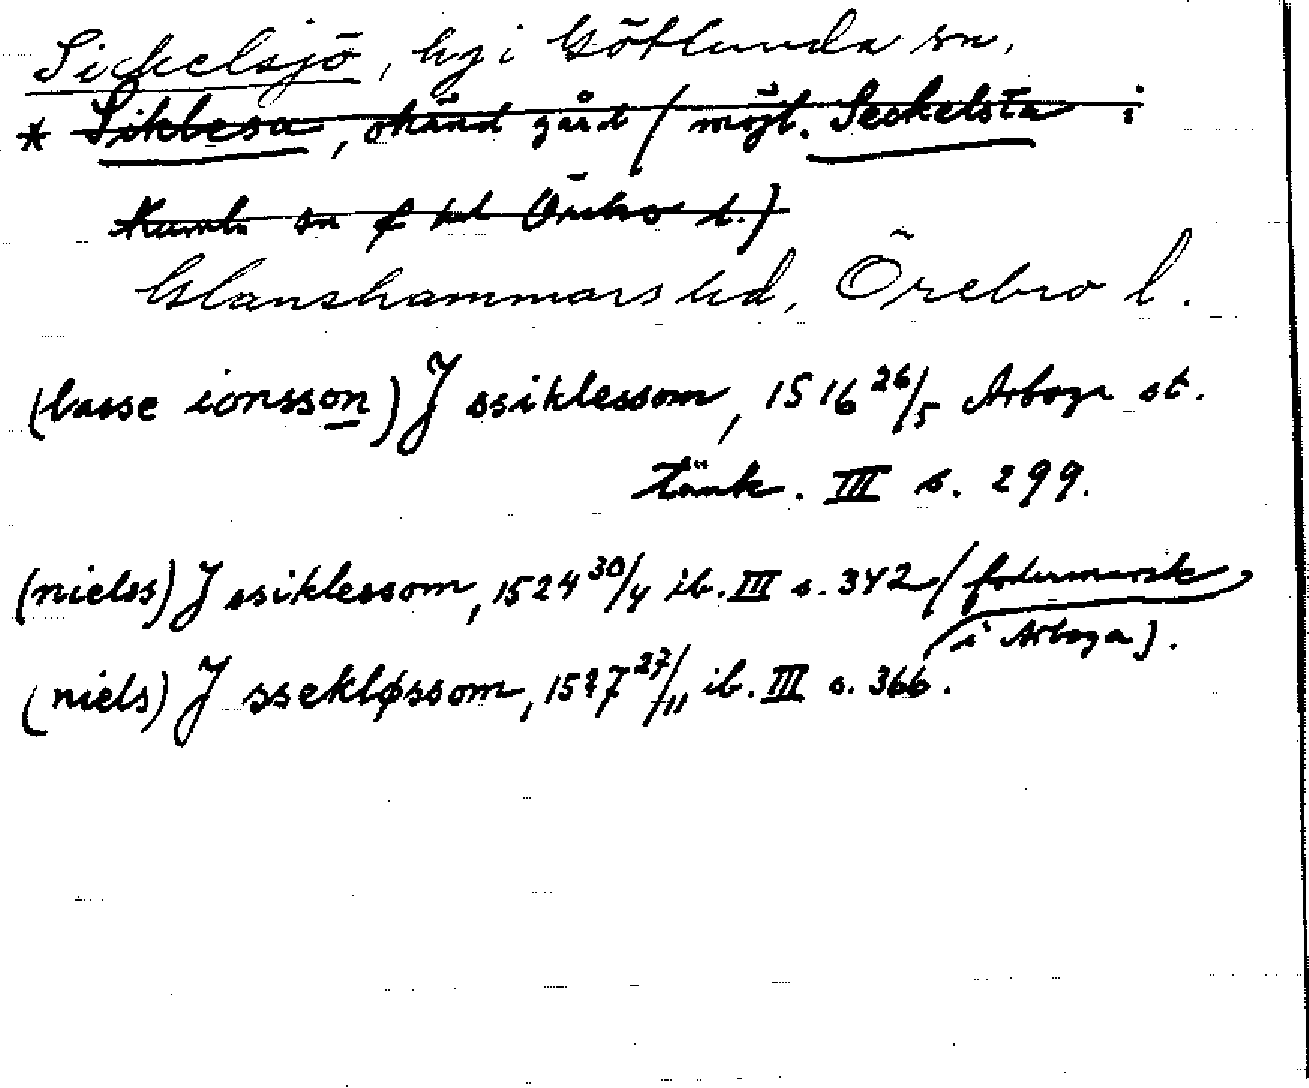 Sickelsjö, by i Götlunda sn,
* Siklesa, okänd gård (möjl. Seckelsta i
Kumla sn o hd Örebro l.)
Glanshammars hd, Örebro l.
(lasse ionsson) J ssiklessom, 1516 26/5 Arboga st.
tänk. III s. 299.
(nielss) J ssiklessom, 1524 30/4 ib. III s. 342 (
i Arboga).
(niels) J ssekløssom, 1527 27/11 ib. III s. 366.